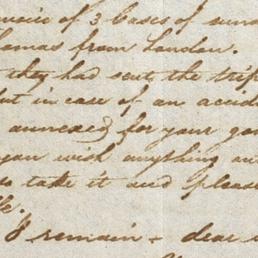 of 3 Cases of
from London.
they had sent the
but in case of an
annexed for your
you wish anything
to take it and please
I remain - dear